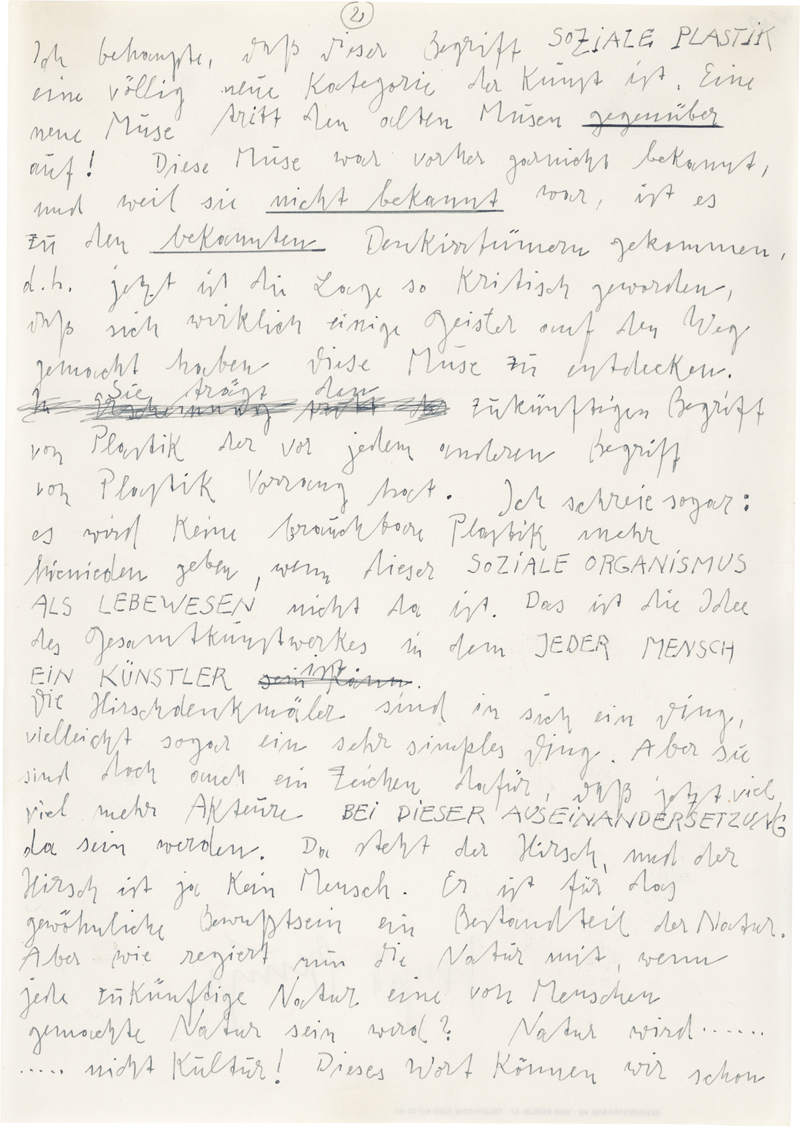 2)
Ich behaupte, daß dieser Begriff SOZIALE PLASTIK
eine völlig neue Kategorie der Kunst ist. Eine
neue Muse tritt den alten Musen gegenüber
auf! Diese Muse war vorher garnicht bekannt,
und weil sie nicht bekannt war, ist es
zu den bekannten Denkirrtümern gekommen,
d.h. jetzt ist die Lage so kritisch geworden,
daß sich wirklich einige Geister auf den Weg
gemacht haben diese Muse zu entdecken.
Sie trägt den
zukünftigen Begriff
von Plastik der vor jedem anderen Begriff
von Plastik Vorrang hat. Ich schreie sogar:
es wird keine brauchbare Plastik mehr
hienieden geben, wenn dieser SOZIALE ORGANISMUS
ALS LEBEWESEN nicht da ist. Das ist die Idee
des Gesamtkunstwerkes in dem JEDER MENSCH
EIN KÜNSTLER ist.
Die Hirschdenkmäler sind in sich ein Ding,
vielleicht sogar ein sehr simples Ding. Aber sie
sind doch auch ein Zeichen dafür, daß jetzt viel,
viel mehr Akteure BEI DIESER AUSEINANDERSETZUNG
da sein werden. Da steht der Hirsch, und der
Hirsch ist ja kein Mensch. Er ist für das
gewöhnliche Bewußtsein ein Bestandteil der Natur.
Aber wie regiert nun die Natur mit, wenn
jede zukünftige Natur eine von Menschen
gemachte Natur sein wird? Natur wird......
..... nicht Kultur! Dieses Wort können wir schon